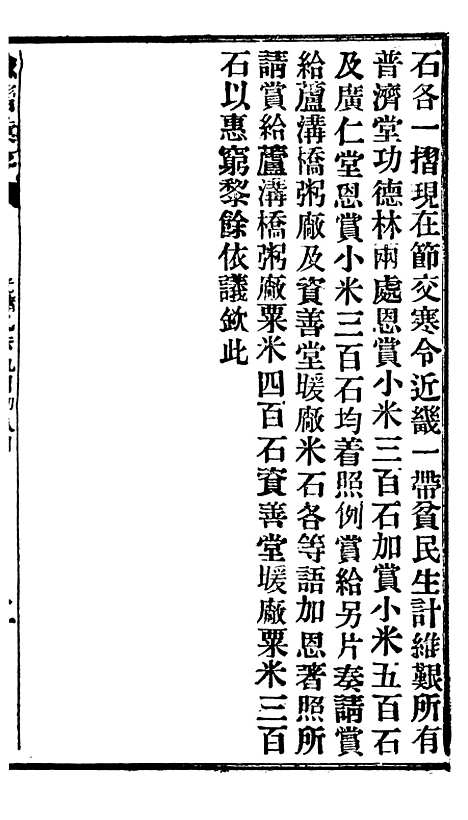 石各一摺現在節交寒令近畿一帶貧民生計維艱所有
普濟堂功德林兩處恩賞小米三百石加賞小米五百石
及廣仁堂恩賞小米三百石均着照例賞給另片奏請賞
給蘆溝橋粥廠及資善堂暖廠米石各等語加恩著照所
請賞給蘆溝橋粥廠粟米四百石資善堂煖廠粟米三百
石以惠窮黎餘依議欽此